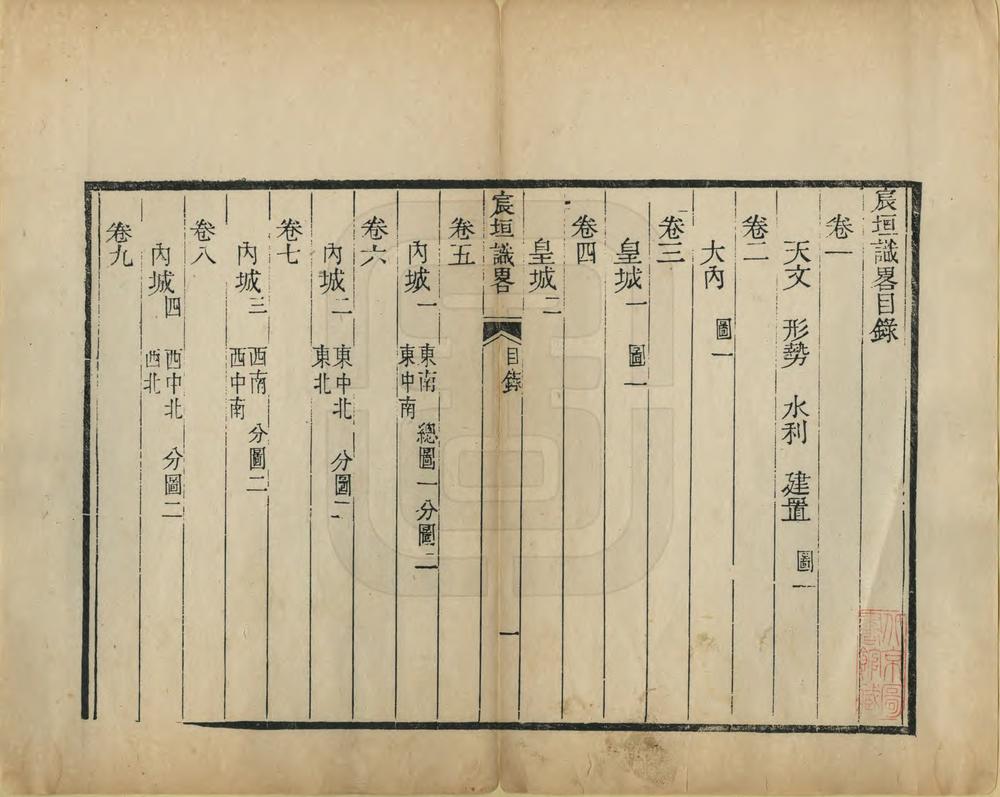 宸垣識畧目錄
卷一
天文 形勢 水利 建置 圖一
卷二
大內 圖一
卷三
皇城一 圖一
卷四
皇城二
宸垣識畧 目錄 一
卷五
內城一 東南 東中南 總圖一分圖二
卷六
內城二 東中北 東北 分圖二
卷七
內城三 西南 西中南 分圖二
卷八
內城四 西中北 西北 分圖二
卷九
北京圖
書館藏